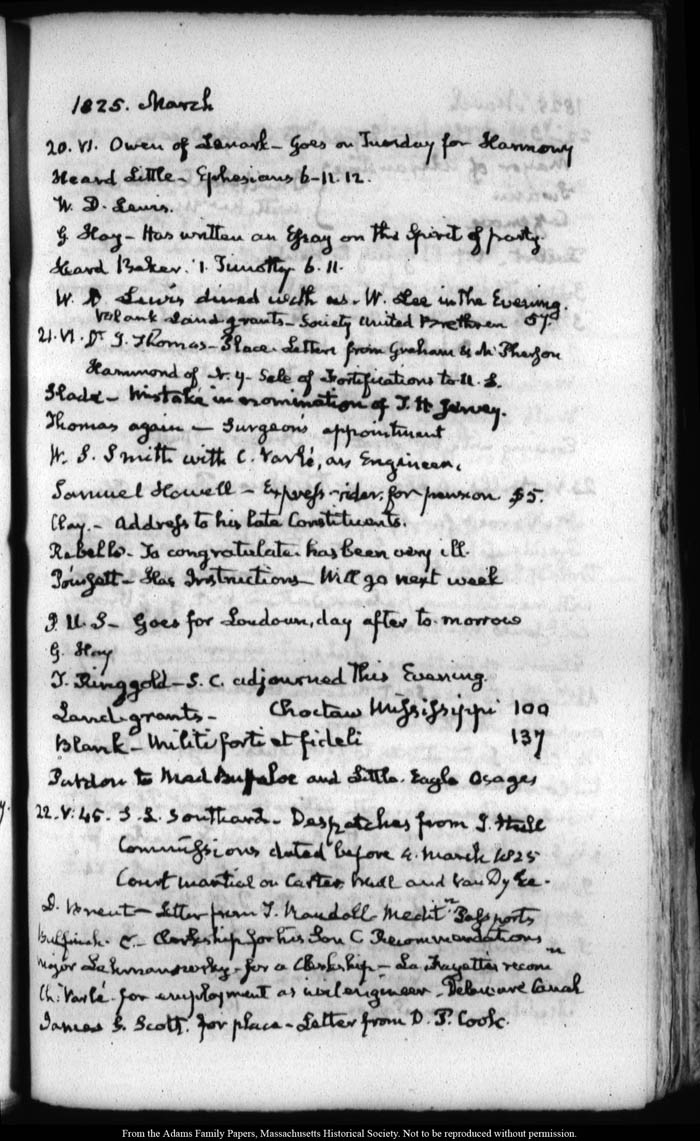 1825. March
20. VI. Owen of Lanark - Goes on Tuesday for Harmony
Heard Little - Ephesians 6-11.12.
W. D. Lewis.
G Hay - Has written an Essay on the Spirit of party.
Heard Baker. 1. Timothy 6. 11.
W. D Lewis dined with us - W. Lee in the Evening.
Blank Land grants - Society United Brethren 57.
21. VI. Dr J. Thomas - Place. Letters from Graham & McPherson
Hammond of N. Y - Sale of Fortifications to U. S.
Slade - Mistake in nomination of T. H Jervey.
Thomas again - Surgeons appointment
W. S. Smith with C. Varlé, as Engineer.
Samuel Howell - Express-rider, for pension $5.
Clay. - Address to his late Constituents.
Rebello - To congratulate. has been very ill.
Poinsett - Has Instructions - Will go next week
P. U. S - Goes for Loudoun, day after to-morrow
G. Hay
T. Ringgold - S. C. adjourned this Evening.
Land-grants - Choctaw Mississippi 100
Blank - Militi forti et fideli 137
Pardon to Mad Buffaloe and Little-Eagle Osages
22. V. 45. S. L. Southard - Despatches from I. Hull
Commissions dated before 4. March 1825
Court martial on Carter, Hull and Van Dyke -
D. Brent - Letter from T. Randall Medit.n Passports
Bulfinch. C. - Clerkship for his Son C Recommendations
Major Lehmanowsky - for a Clerkship - La Fayette's recomn
Ch. Varlé - for employment as civil engineer - Delaware Canal
James G. Scott. for place - Letter from D. P. Cook.
From the Adams Family Papers, Massachusetts Historical Society. Not to be reproduced without permission.